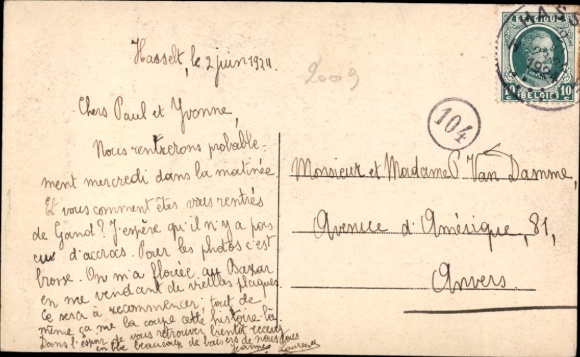 Hasselt, le 2 juin 1924.
2009
HASS
BELGIE
10 10
104
Chers Paul et Yvonne,
Nous rentrerons probable-
ment mercredi dans la matinée
Et vous comment êtes vous rentrés
de Gand? J'espère qu'il n'y a pas
eu d'accrocs. Pour les photos c'est
brosse. On m'a floué au Bazar
en me vendant de vieilles plaques.
Ce sera à recommencer, tout de
même ça me la coupe cette histoire là.
Dans l'espoir de vous retrouver bientôt recevez
en bloc beaucoup de baisers de nous tous
Monsieur et Madame P. Van Damme,
Avenue d'Amérique, 81,
Anvers.